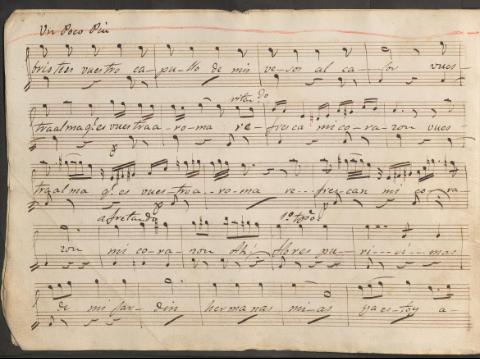 Un Poco Piu
bristeis vuestro ca- pu- llo de mis ve- sos al ca- lor vues-
ritar.do
tra alma q.e es vuestra a- ro- ma re- fresca mi co- ra- zon vues
p
tra alma q.e es vues- tra a- ro- ma re- frez- can mi co- ra-
afretando p 1º tpo p
zon mi co- ra- zon Ah! flores pu- ri- si- mas
de mi jar- din hermanas mi- as ya estoy a-